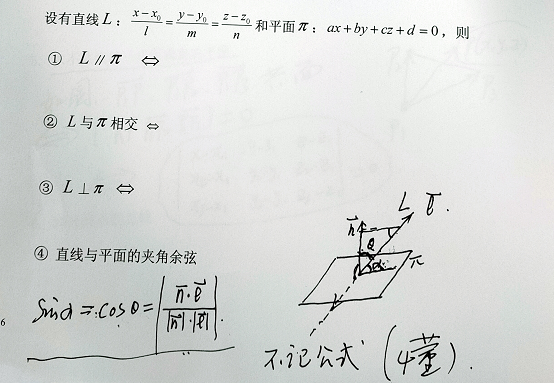 设有直线 L：(x-x₀)/l = (y-y₀)/m = (z-z₀)/n 和平面 π：ax+by+cz+d=0，则
① L // π ⇔
② L 与 π 相交 ⇔
③ L ⊥ π ⇔
④ 直线与平面的夹角余弦
sinα = cosθ = |n⃗·l⃗ / |n⃗|·|l⃗||
n⃗ θ α L l⃗ π
不记公式（懂）.
6